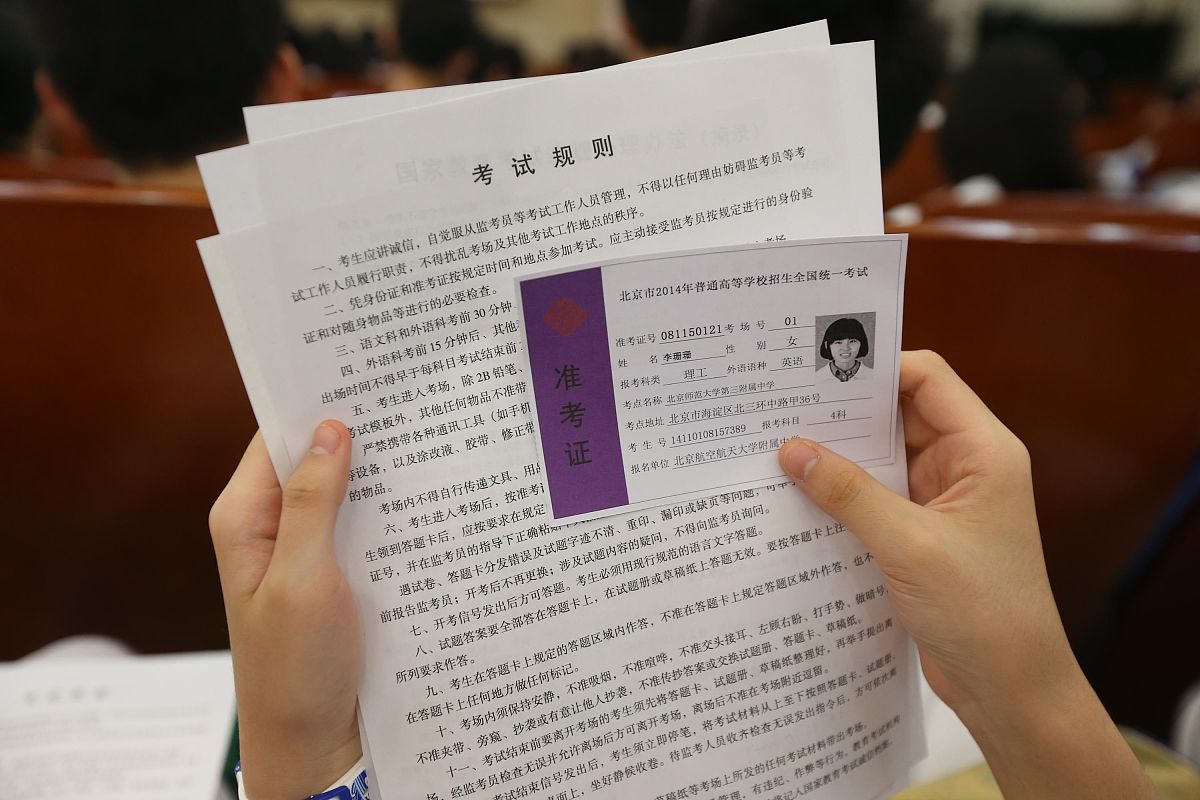 考试规则
一、考生应讲诚信，自觉服从监考员等考试工作人员管理，不得以任何理由妨碍监考员等考
试工作人员履行职责，不得扰乱考场及其他考试工作地点的秩序。
二、凭身份证和准考证按规定时间和地点参加考试。应主动接受监考员按规定进行的身份验
证和对随身物品等进行的必要检查。
三、语文科和外语科考前30分钟、
四、外语科考前15分钟后、其他
出场时间不得早于每科目考试结束前
五、考生进入考场，除2B铅笔、
考试模板外，其他任何物品不准带
严禁携带各种通讯工具（如手机
等设备，以及涂改液、胶带、修正带
的物品。
考场内不得自行传递文具、用品
六、考生进入考场后，按准考
生领到答题卡后，应按要求在规定
证号，并在监考员的指导下正确粘贴
遇试卷、答题卡分发错误及试题字迹不清、重印、漏印或缺页等问题，可举手
前报告监考员；开考后不再更换；涉及试题内容的疑问，不得向监考员询问。
七、开考信号发出后方可答题。考生必须用现行规范的语言文字答题。
八、试题答案要全部答在答题卡上，在试题册或草稿纸上答题无效。要按答题卡上注
所列要求作答。
九、考生在答题卡上规定的答题区域内作答，不准在答题卡上规定答题区域外作答，也不
在答题卡上任何地方做任何标记。
十、考场内须保持安静，不准吸烟，不准喧哗，不准交头接耳、左顾右盼、打手势、做暗号，
不准夹带、旁窥、抄袭或有意让他人抄袭，不准传抄答案或交换试题册、答题卡、草稿纸。
十一、考试结束前要离开考场的考生须先将答题卡、试题册、草稿纸整理好，再举手提出离
场，经监考员检查无误并允许离场后方可离开考场，离场后不准在考场附近逗留。
考试结束信号发出后，考生须立即停笔，将考试材料从上至下按照答题卡、试题册、
桌面上，坐好静候收卷。待监考人员收齐检查无误发出指令后，方可依次离
草稿纸等考场上所发的任何考试材料带出考场。
管理，有违纪、作弊等行为，教育考试机构
将记入国家教育考试诚信档案。
准考证
北京市2014年普通高等学校招生全国统一考试
准考证号 081150121 考场号 01
姓名 李珊珊 性别 女
报考科类 理工 外语语种 英语
考点名称 北京师范大学第三附属中学
考点地址 北京市海淀区北三环中路甲36号
考生号 14110108157389 报考科目 4科
报名单位 北京航空航天大学附属中学